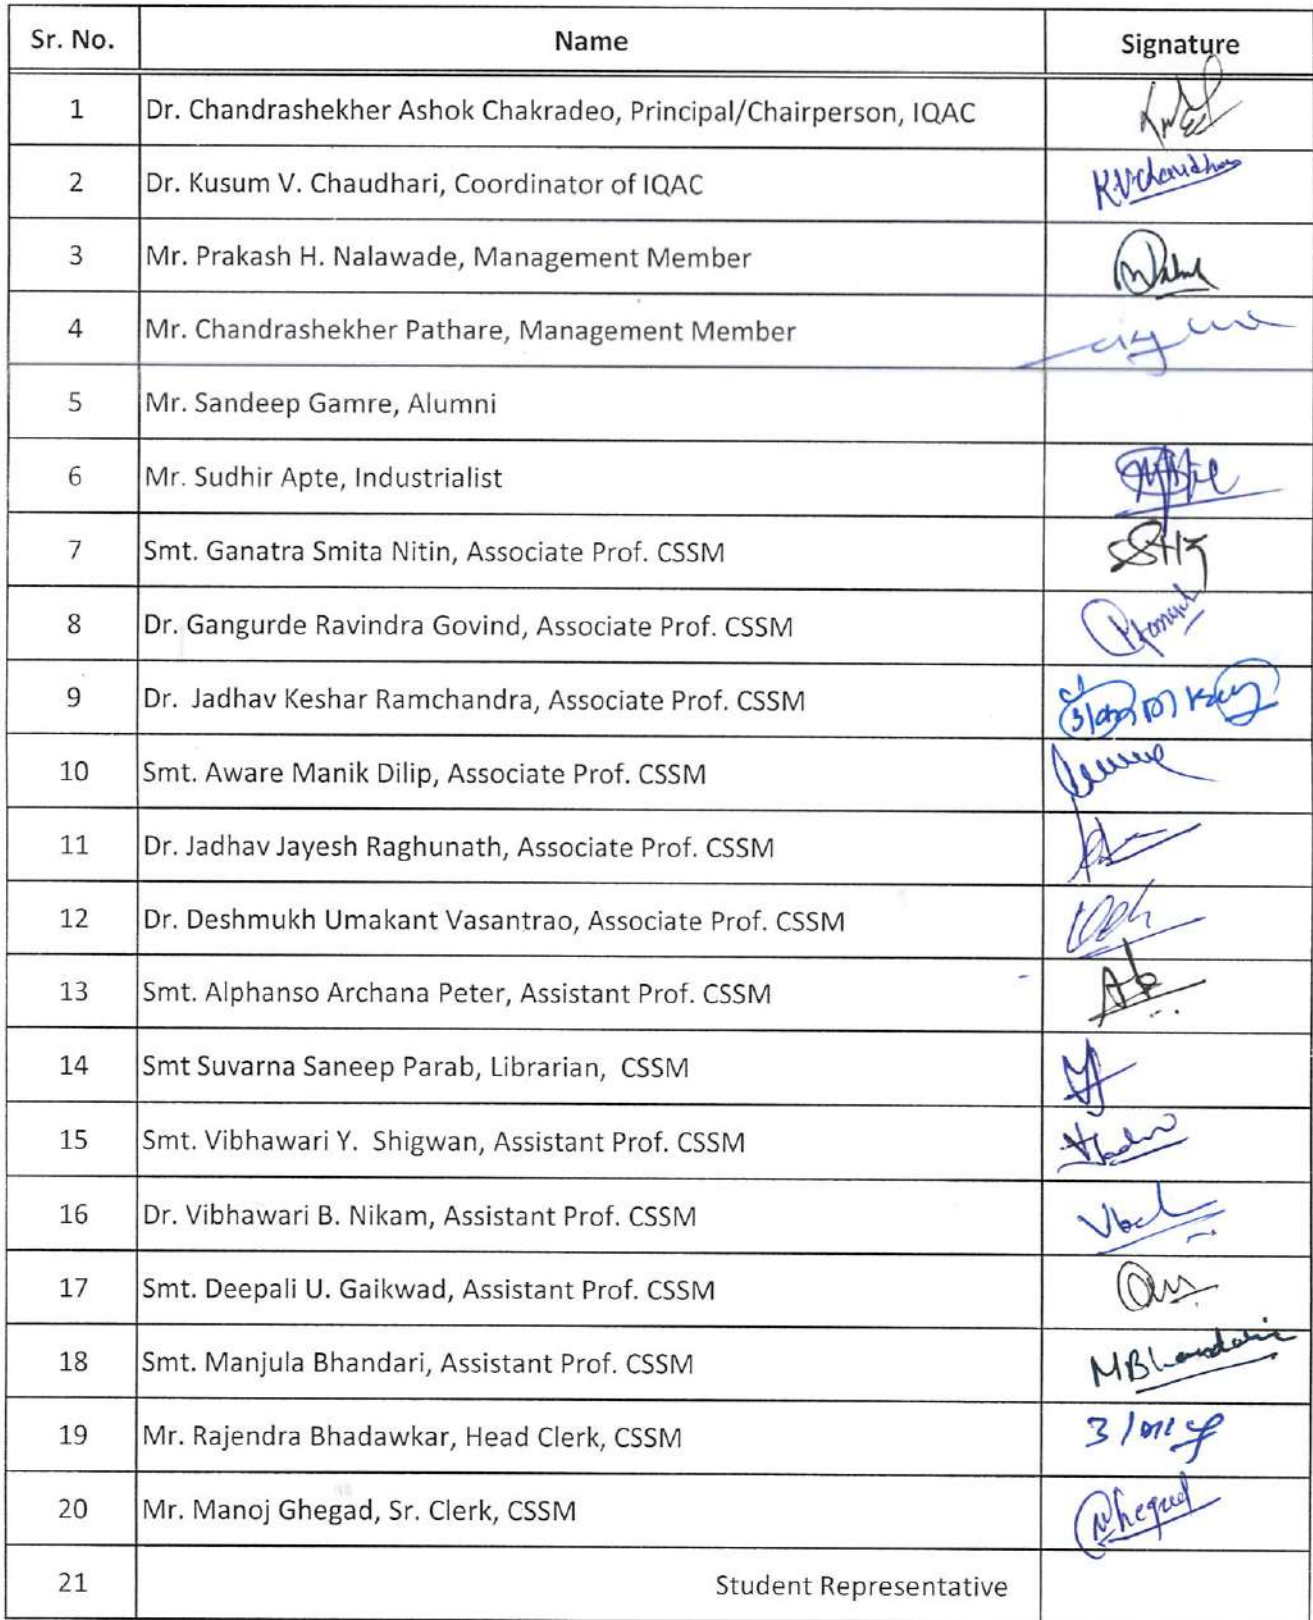 Sr. No. Name Signature
1 Dr. Chandrashekher Ashok Chakradeo, Principal/Chairperson, IQAC
2 Dr. Kusum V. Chaudhari, Coordinator of IQAC K.V.Chaudhari
3 Mr. Prakash H. Nalawade, Management Member
4 Mr. Chandrashekher Pathare, Management Member
5 Mr. Sandeep Gamre, Alumni
6 Mr. Sudhir Apte, Industrialist
7 Smt. Ganatra Smita Nitin, Associate Prof. CSSM
8 Dr. Gangurde Ravindra Govind, Associate Prof. CSSM
9 Dr. Jadhav Keshar Ramchandra, Associate Prof. CSSM
10 Smt. Aware Manik Dilip, Associate Prof. CSSM
11 Dr. Jadhav Jayesh Raghunath, Associate Prof. CSSM
12 Dr. Deshmukh Umakant Vasantrao, Associate Prof. CSSM
13 Smt. Alphanso Archana Peter, Assistant Prof. CSSM
14 Smt Suvarna Saneep Parab, Librarian, CSSM
15 Smt. Vibhawari Y. Shigwan, Assistant Prof. CSSM
16 Dr. Vibhawari B. Nikam, Assistant Prof. CSSM
17 Smt. Deepali U. Gaikwad, Assistant Prof. CSSM
18 Smt. Manjula Bhandari, Assistant Prof. CSSM MBhandari
19 Mr. Rajendra Bhadawkar, Head Clerk, CSSM
20 Mr. Manoj Ghegad, Sr. Clerk, CSSM
21 Student Representative